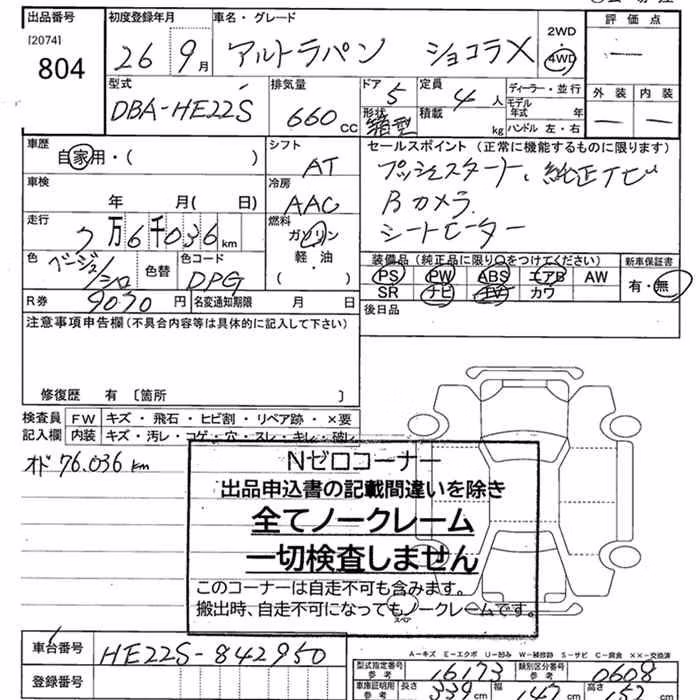 出品番号 初度登録年月 車名・グレード 評価点
[2074]
804
26 9月 アルトラパン ショコラX 2WD・4WD
型式 排気量 ドア 定員 ディーラー・並行 外装 内装
DBA-HE22S 660 cc 5 4人 モデル年式 年
形状 積載 kg ハンドル 左・右
箱型
車歴 シフト セールスポイント (正常に機能するものに限ります)
自家用・( ) AT プッシュスタート、純正ナビ
車検 冷房 Bカメラ
年 月( 日) AAC シートヒーター
走行 燃料
7万6千036km ガソリン
軽・油
(・)
色 色替 色コード 装備品 (純正品に限り○をつけてください) 新車保証書
ベージュ/シロ DPG PS PW ABS エアB AW 有・無
SR ナビ TV カワ
R券 9030円 名変通知期限 月 日 後日品
注意事項申告欄 (不具合内容等は具体的に記入して下さい)
修復歴 有 〔箇所 〕
検査員 FW キズ・飛石・ヒビ割・リペア跡・×要
記入欄 内装 キズ・汚レ・コゲ・穴・スレ・キレ・破レ
オド 76,036 km
Nゼロコーナー
出品申込書の記載間違いを除き
全てノークレーム
一切検査しません
このコーナーは自走不可も含みます。
搬出時、自走不可になってもノークレームです。
スペア
A-キズ E-エクボ U-凹み W-補修跡 S-サビ C-腐食 ××-交換済
車台番号 HE22S-842950
型式指定番号 参考 16173 類別区分番号 参考 0608
登録番号 車庫証明用 参考 長さ 339cm 幅 147cm 高さ 152cm